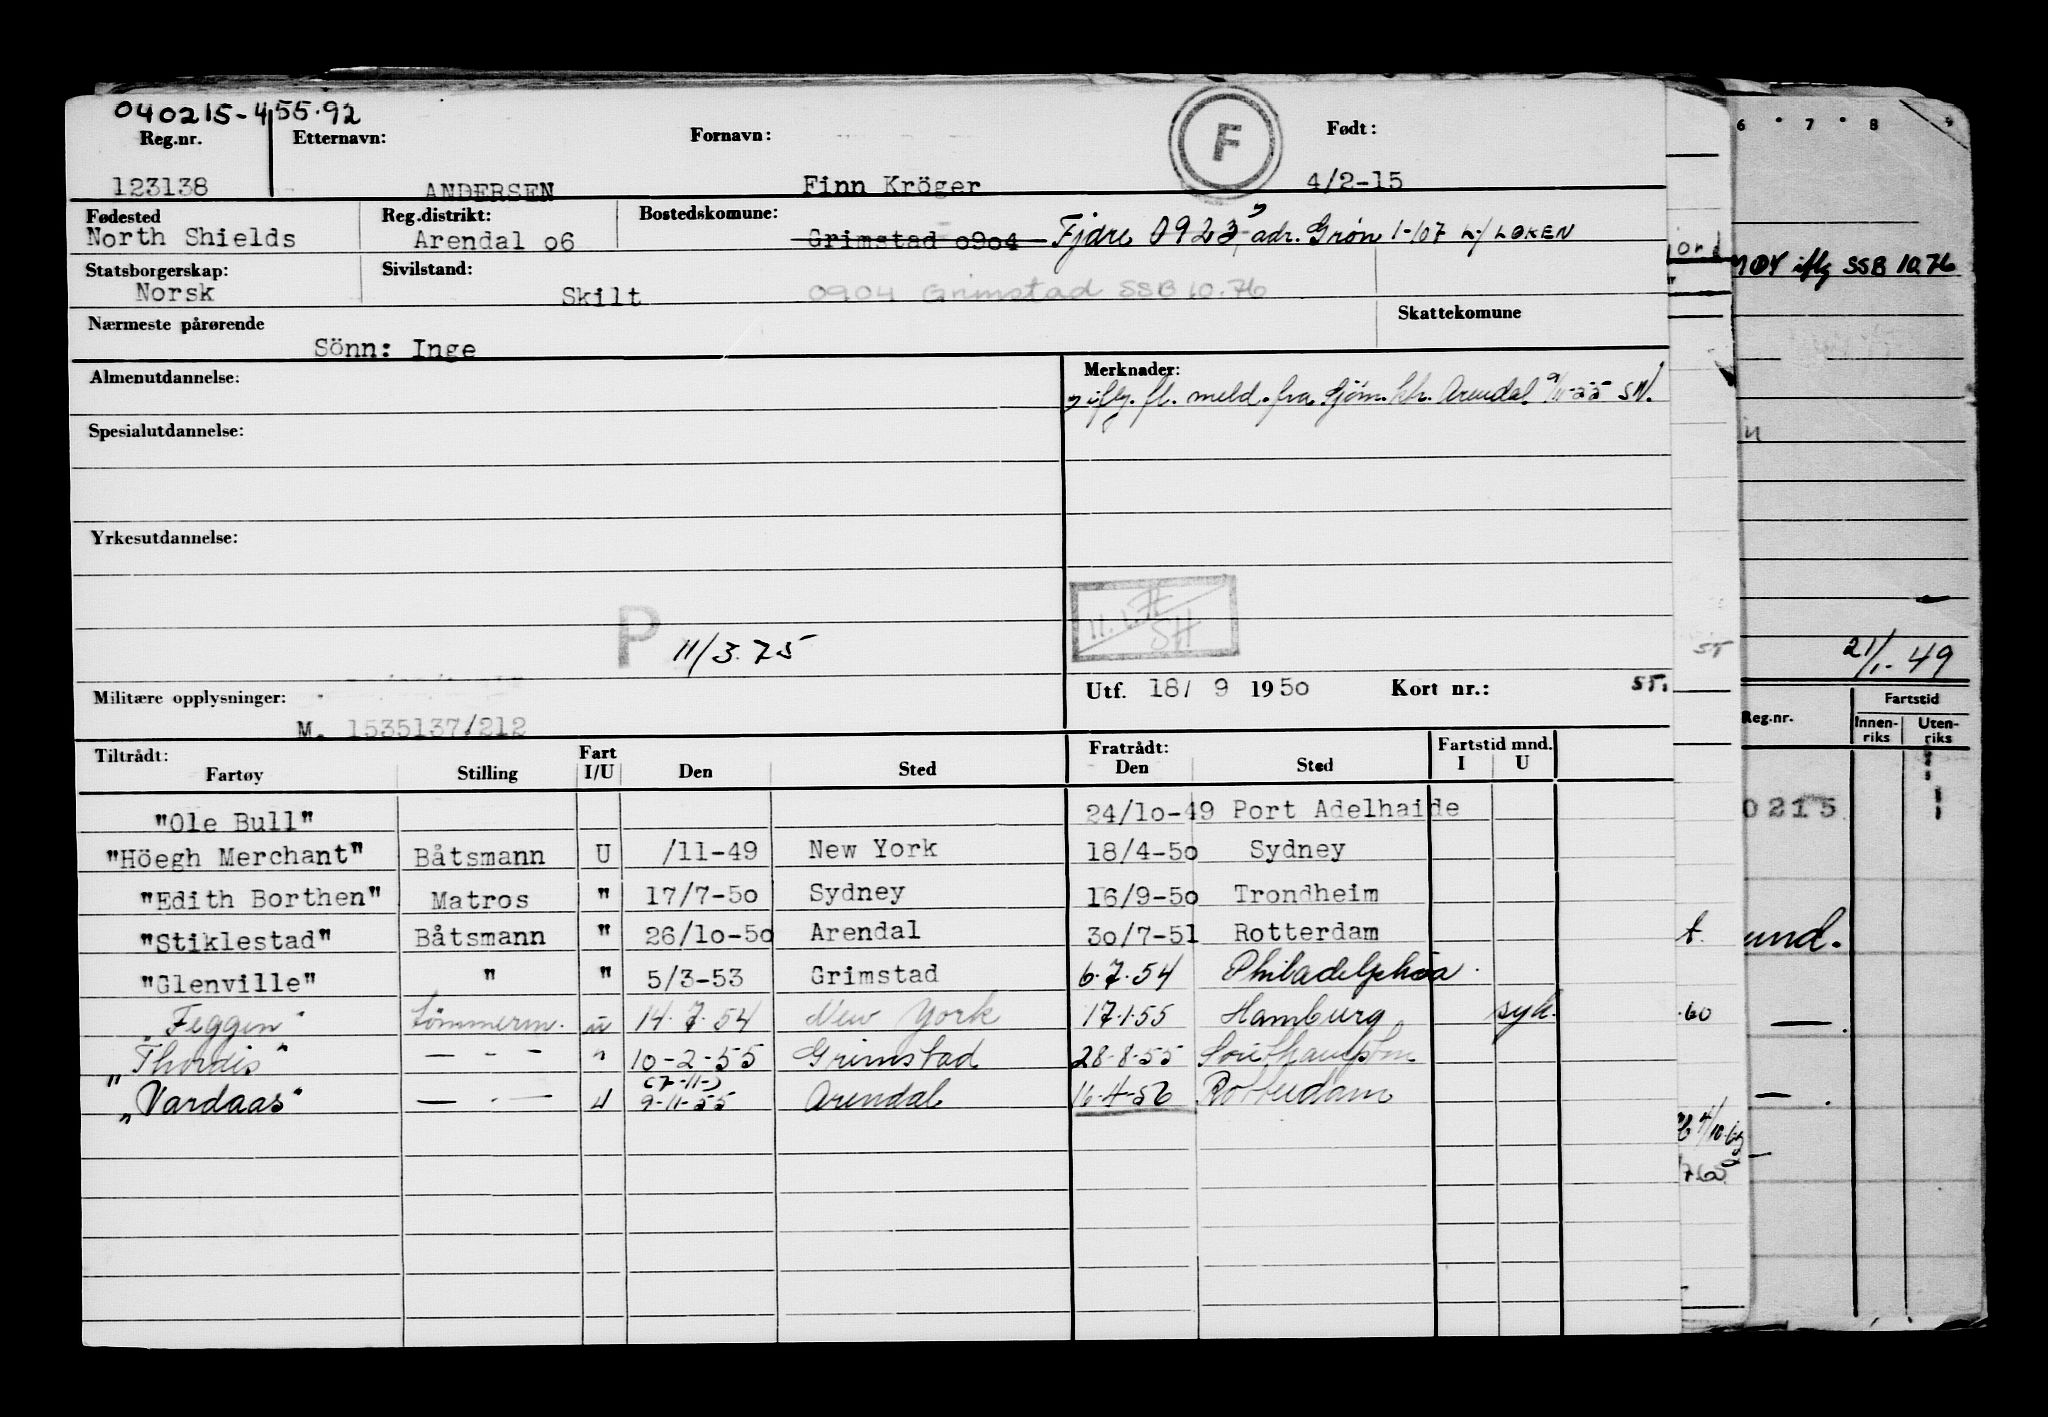 040215-455.92
Reg.nr. Etternavn: Fornavn: F Født:
123138 ANDERSEN Finn Kröger 4/2-15
Fødested Reg.distrikt: Bostedskomune:
North Shields Arendal o6 Grimstad o9o4 Fjære 0923, adr. Grøn 1-107 LØKEN
Statsborgerskap: Sivilstand:
Norsk Skilt 0904 Grimstad SSB 10.76
Nærmeste pårørende Skattekomune
Sönn: Inge
Almenutdannelse: Merknader:
iflg. fl. meld. fra Sjøm. ktr. Arendal 9/11-55 SN.
Spesialutdannelse:
Yrkesutdannelse:
P 11/3.75
SH
Militære opplysninger: Utf. 18/ 9 1950 Kort nr.: ST.
M. 1535137/212
Tiltrådt: Fart Fratrådt: Fartstid mnd.
Fartøy Stilling I/U Den Sted Den Sted I U
"Ole Bull" 24/1o-49 Port Adelhaide
"Höegh Merchant" Båtsmann U /11-49 New York 18/4-5o Sydney
"Edith Borthen" Matros " 17/7-5o Sydney 16/9-5o Trondheim
"Stiklestad" Båtsmann " 26/1o-5o Arendal 3o/7-51 Rotterdam
"Glenville" " " 5/3-53 Grimstad 6.7.54 Philadelphia
"Feggen" tömmerm. u 14.7.54 New York 17.1.55 Hamburg syk.
"Thordis" — - — " 10-2-55 Grimstad 28-8-55 Southampton
(7-11-)
"Vardaas" — - — U 9-11-55 Arendal 16-4-56 Rotterdam
6 7 8 9
iflg SSB 10.76
21/1-49
Reg.nr. Fartstid
Innen-riks Uten-riks
0215
und.
ST
t.
.60